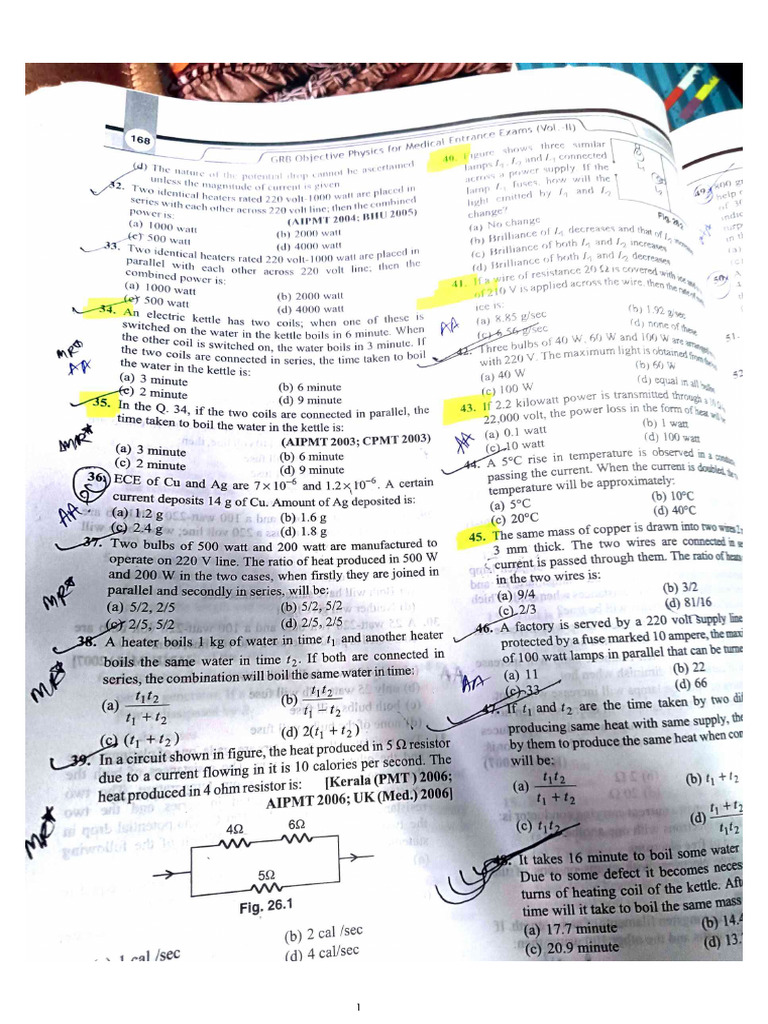 168
GRB Objective Physics for Medical Entrance Exams (Vol.-II)
(d) The nature of the potential drop cannot be ascertained
unless the magnitude of current is given
32. Two identical heaters rated 220 volt-1000 watt are placed in
series with each other across 220 volt line; then the combined
power is:
(AIPMT 2004; BHU 2005)
(a) 1000 watt
(b) 2000 watt
(c) 500 watt
(d) 4000 watt
33. Two identical heaters rated 220 volt-1000 watt are placed in
parallel with each other across 220 volt line; then the
combined power is:
(a) 1000 watt
(b) 2000 watt
(c) 500 watt
(d) 4000 watt
34. An electric kettle has two coils; when one of these is
switched on the water in the kettle boils in 6 minute. When
the other coil is switched on, the water boils in 3 minute. If
the two coils are connected in series, the time taken to boil
the water in the kettle is:
MR*
AA
(a) 3 minute
(b) 6 minute
(c) 2 minute
(d) 9 minute
35. In the Q. 34, if the two coils are connected in parallel, the
time taken to boil the water in the kettle is:
MR*
(AIPMT 2003; CPMT 2003)
(a) 3 minute
(b) 6 minute
(c) 2 minute
(d) 9 minute
36. ECE of Cu and Ag are 7×10⁻⁶ and 1.2×10⁻⁶. A certain
current deposits 14 g of Cu. Amount of Ag deposited is:
AA
(a) 1.2 g
(b) 1.6 g
(c) 2.4 g
(d) 1.8 g
37. Two bulbs of 500 watt and 200 watt are manufactured to
operate on 220 V line. The ratio of heat produced in 500 W
and 200 W in the two cases, when firstly they are joined in
parallel and secondly in series, will be:
MR*
(a) 5/2, 2/5
(b) 5/2, 5/2
(c) 2/5, 5/2
(d) 2/5, 2/5
38. A heater boils 1 kg of water in time t₁ and another heater
boils the same water in time t₂. If both are connected in
series, the combination will boil the same water in time:
MR*
(a) t₁t₂ / t₁ + t₂
(b) t₁t₂ / t₁ − t₂
(c) (t₁ + t₂)
(d) 2(t₁ + t₂)
39. In a circuit shown in figure, the heat produced in 5 Ω resistor
due to a current flowing in it is 10 calories per second. The
heat produced in 4 ohm resistor is:
[Kerala (PMT) 2006;
AIPMT 2006; UK (Med.) 2006]
MR*
4Ω
6Ω
5Ω
Fig. 26.1
1 cal /sec
(b) 2 cal /sec
(d) 4 cal/sec
40. Figure shows three similar
lamps L₁, L₂ and L₃ connected
across a power supply. If the
lamp L₃ fuses, how will the
light emitted by L₁ and L₂
change?
Fig. 26.2
(a) No change
(b) Brilliance of L₁ decreases and that of L₂ increases
(c) Brilliance of both L₁ and L₂ increases
(d) Brilliance of both L₁ and L₂ decreases
41. If a wire of resistance 20 Ω is covered with ice and
of 210 V is applied across the wire, then the rate of
ice is:
AA
(a) 8.85 g/sec
(b) 1.92 g/sec
(c) 6.56 g/sec
(d) none of these
42. Three bulbs of 40 W, 60 W and 100 W are arranged
with 220 V. The maximum light is obtained from the
(a) 40 W
(b) 60 W
(c) 100 W
(d) equal in all bulbs
43. If 2.2 kilowatt power is transmitted through a
22,000 volt, the power loss in the form of heat will be
AA
(a) 0.1 watt
(b) 1 watt
(c) 10 watt
(d) 100 watt
44. A 5°C rise in temperature is observed in a
passing the current. When the current is doubled, the
temperature will be approximately:
(a) 5°C
(b) 10°C
(c) 20°C
(d) 40°C
45. The same mass of copper is drawn into two wires
3 mm thick. The two wires are connected in
current is passed through them. The ratio of
in the two wires is:
(a) 9/4
(b) 3/2
(c) 2/3
(d) 81/16
46. A factory is served by a 220 volt supply line
protected by a fuse marked 10 ampere, the
of 100 watt lamps in parallel that can be
AA
(a) 11
(b) 22
(c) 33
(d) 66
47. If t₁ and t₂ are the time taken by two
producing same heat with same supply,
by them to produce the same heat when
will be:
(a) t₁t₂ / t₁ + t₂
(b) t₁ + t₂
(c) t₁t₂
(d) t₁ + t₂ / t₁t₂
48. It takes 16 minute to boil some water
Due to some defect it becomes
turns of heating coil of the kettle.
time will it take to boil the same mass
(a) 17.7 minute
(b) 14.
(c) 20.9 minute
(d) 13.
51.
1